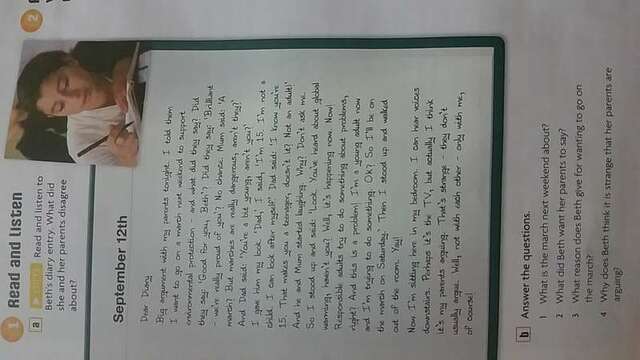 1 Read and listen
a Read and listen to
Beth's diary entry. What did
she and her parents disagree
about?
2
September 12th
Dear Diary
Big argument with my parents tonight. I told them
I want to go on a march next weekend to support
environmental protection – and what did they say? Did
they say: 'Good for you, Beth'? Did they say: 'Brilliant
– we're really proud of you'? No chance. Mum said: 'A
march? But marches are really dangerous, aren't they?'
And Dad said: 'You're a bit young, aren't you?'
I gave him my look. 'Dad,' I said, 'I'm 15. I'm not a
child. I can look after myself.' Dad said: 'I know you're
15. That makes you a teenager, doesn't it? Not an adult!'
And he and Mum started laughing. Why? Don't ask me.
So I stood up and said: 'Look. You've heard about global
warming, haven't you? Well, it's happening now. Now!
Responsible adults try to do something about problems,
right? And this is a problem! I'm a young adult now
and I'm trying to do something. OK? So I'll be on
the march on Saturday.' Then I stood up and walked
out of the room. Yay!
Now I'm sitting here in my bedroom. I can hear voices
downstairs. Perhaps it's the TV, but actually I think
it's my parents arguing. That's strange – they don't
usually argue. Well, not with each other – only with me,
of course!
b Answer the questions.
1 What is the march next weekend about?
2 What did Beth want her parents to say?
3 What reason does Beth give for wanting to go on
the march?
4 Why does Beth think it is strange that her parents are
arguing?